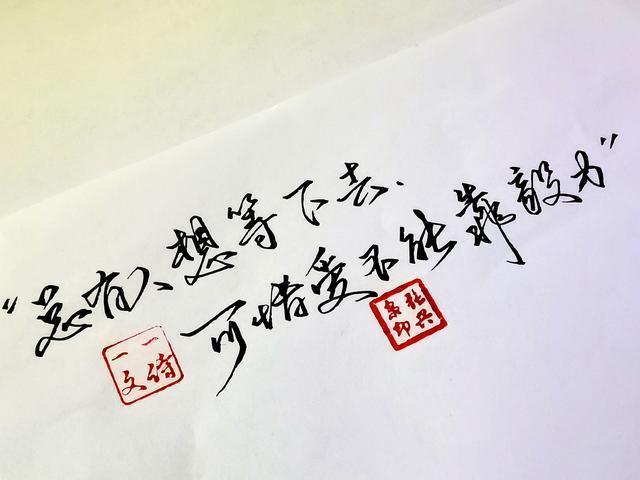 “总有人想等下去.
可惜爱不能靠毅力”
一诗
一文